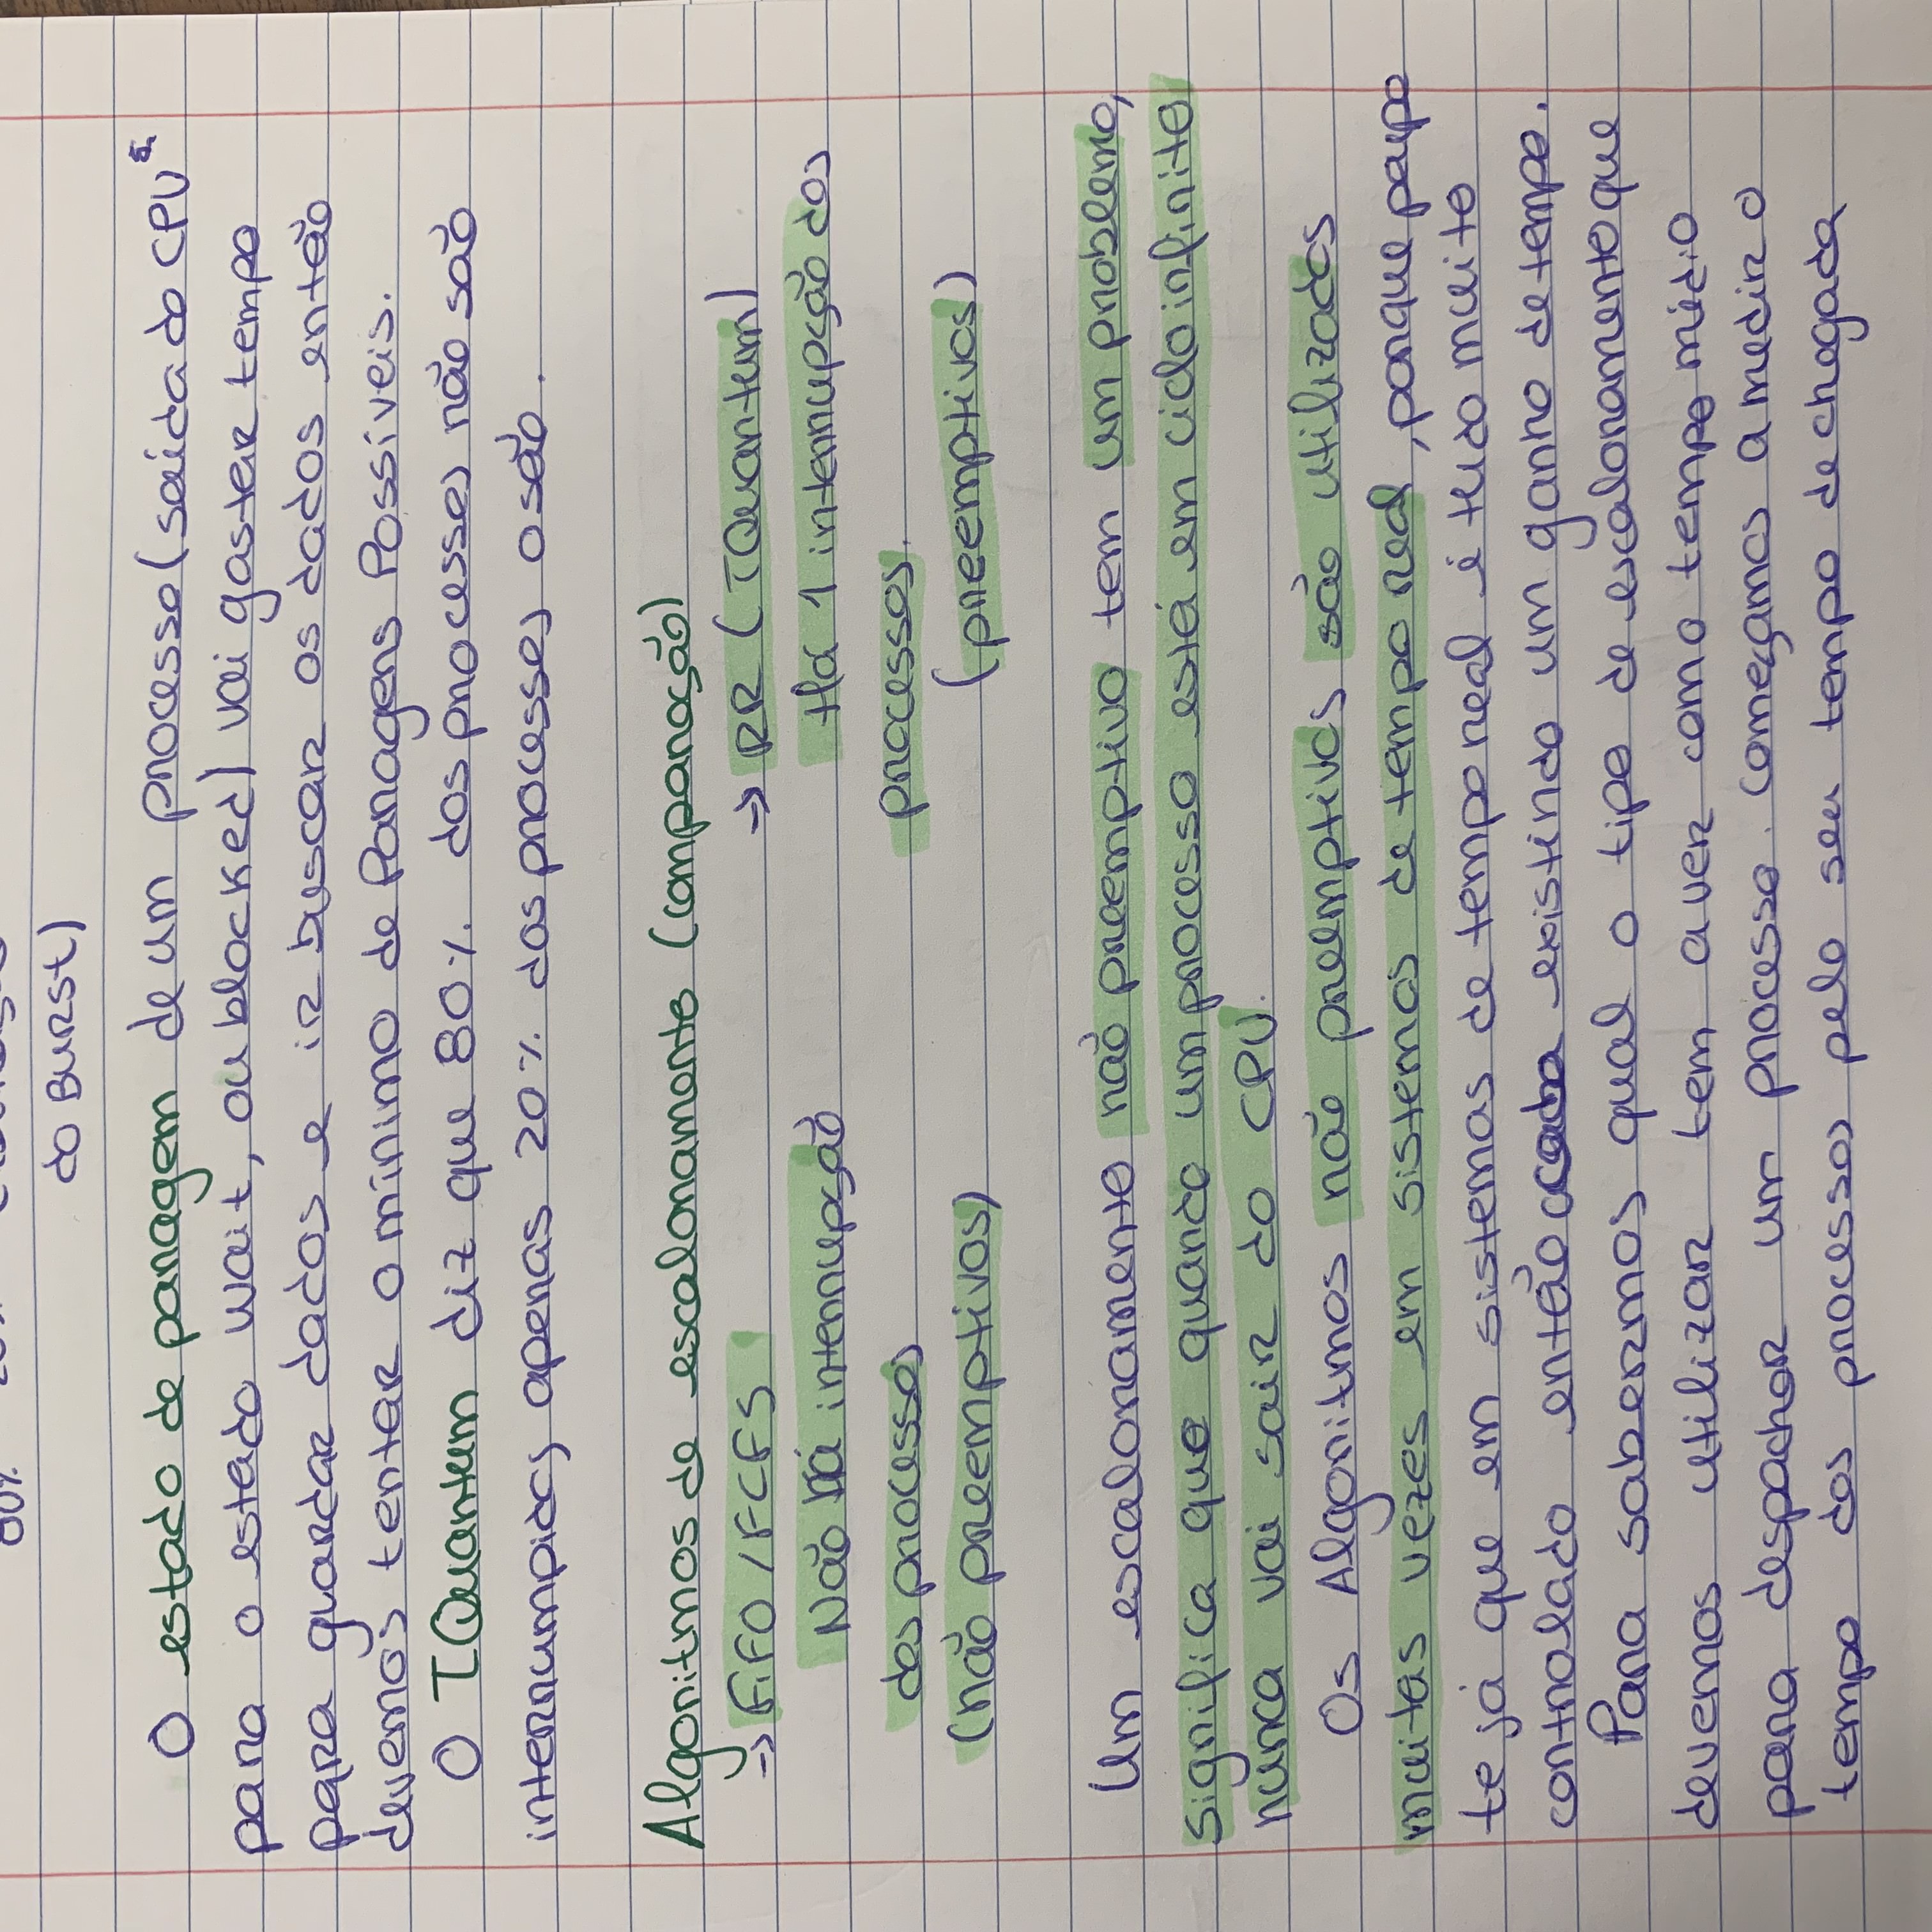 80%
do BURST)
O estado de paragem de um processo (saída do CPU
para o estado wait, ou blocked) vai gastar tempo
para guardar dados e ir buscar os dados então
devemos tentar o mínimo de Paragens Possíveis.
O TQuantum diz que 80% dos processos não são
interrumpidos apenas 20% dos processos o são.
Algoritmos de escalonamento (comparação)
→ FiFO / FCFS → RR (TQuantum)
Não há interrupção Há 1 interrupção dos
dos processos processos.
(não preemptivos) (preemptivos)
Um escalonamento não preemptivo tem um problema,
significa que quando um processo está em ciclo infinito
nunca vai sair do CPU.
Os Algoritmos não preemptivos são utilizados
muitas vezes em sistemas de tempo real, porque paupo
te já que em sistemas de tempo real é tudo muito
controlado então acaba existindo um ganho de tempo.
Para sabermos qual o tipo de escalonamento que
devemos utilizar tem a ver com o tempo médio
para despachar um processo. Começamos a medir o
tempo dos processos pelo seu tempo de chegada